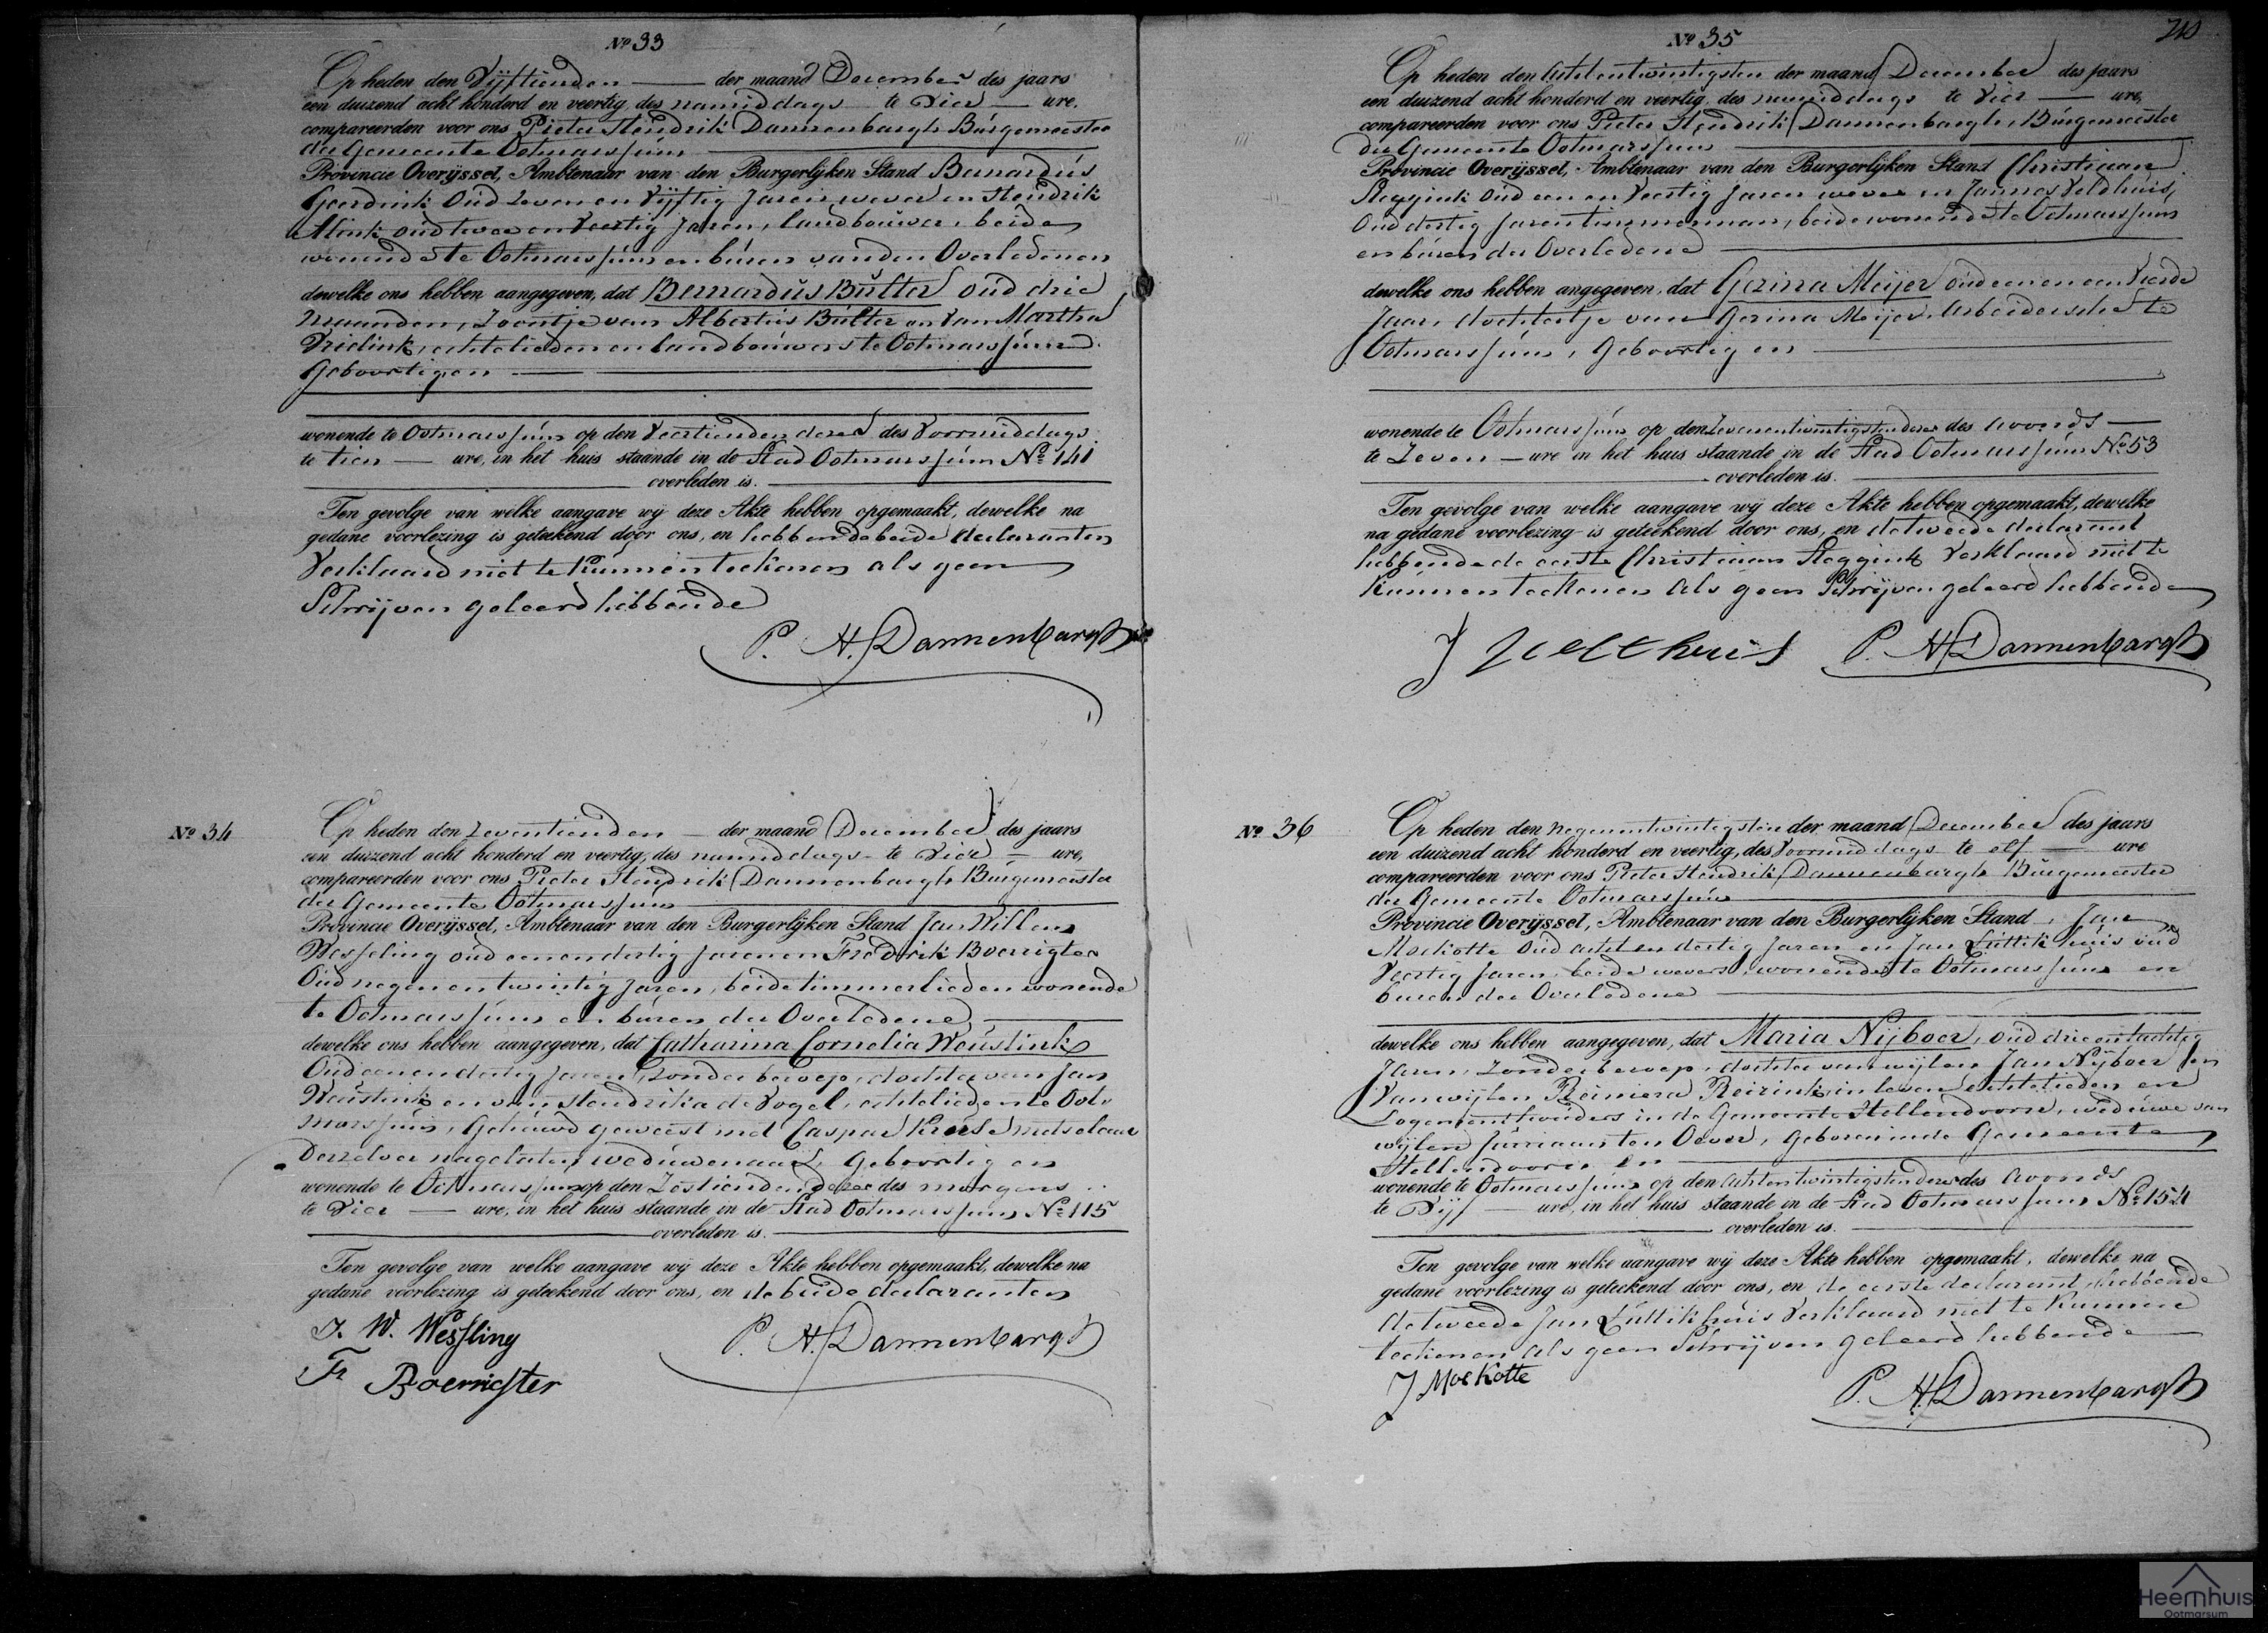 No 33
Op heden den Vijftienden der maand December des jaars
een duizend acht honderd en veertig, des namiddags te Vier ure,
compareerden voor ons Pieter Hendrik Dannenbargh Burgemeester
der Gemeente Ootmarssum
Provincie Overijssel, Ambtenaar van den Burgerlijken Stand Bernardus
Geerdink Oud Zeven en Vijftig Jaren wever en Hendrik
Alink oud twee en Veertig Jaren, landbouwer, beide
wonende te Ootmarssum en buren van den Overledenen
dewelke ons hebben aangegeven, dat Bernardus Bulter oud drie
maanden, Zoontje van Albertus Bulter en Van Martha
Vrielink, echtelieden en landbouwers te Ootmarssum
Geboortig en
wonende te Ootmarssum op den Veertienden dezer des Voormiddags
te tien ure, in het huis staande in de Stad Ootmarssum No 141
overleden is.
Ten gevolge van welke aangave wij deze Akte hebben opgemaakt, dewelke na
gedane voorlezing is geteekend door ons, en hebbende beide declaranten
Verklaard niet te kunnen teekenen als geen
Schrijven geleerd hebbende
P. H. Dannenbargh
No 34
Op heden den Zeventienden der maand December des jaars
een duizend acht honderd en veertig, des namiddags te Vier ure,
compareerden voor ons Pieter Hendrik Dannenbargh Burgemeester
der Gemeente Ootmarssum
Provincie Overijssel, Ambtenaar van den Burgerlijken Stand Jan Willem
Wesseling oud eenendertig jaren en Fredrik Boerrigter
Oud negen en twintig Jaren, beide timmerlieden wonende
te Ootmarssum en buren der Overledene
dewelke ons hebben aangegeven, dat Catharina Cornelia Weustink
Oud eenendertig Jaren, Zonder beroep, dochter van Jan
Weustink en van Hendrika de Vogel, echtelieden te Oot-
marssum, Gehuwd geweest met Caspar Kruse metselaar
Deszelver nagelaten weduwenaar, Geboortig en
wonende te Ootmarssum op den Zestienden dezer des morgens
te Vier ure, in het huis staande in de Stad Ootmarssum No 115
overleden is.
Ten gevolge van welke aangave wij deze Akte hebben opgemaakt, dewelke na
gedane voorlezing is geteekend door ons, en de beide declaranten
J. W. Wessling
P. H. Dannenbargh
Fr Boerrigter
210
No 35
Op heden den Achtentwintigsten der maand December des jaars
een duizend acht honderd en veertig des namiddags te Vier ure,
compareerden voor ons Pieter Hendrik Dannenbargh, Burgemeester
der Gemeente Ootmarssum
Provincie Overijssel, Ambtenaar van den Burgerlijken Stand Christiaan
Steggink Oud een en Veertig Jaren wever en Jannes Veldhuis,
Oud dertig Jaren timmerman, beide wonende te Ootmarssum
en buren der Overledene
dewelke ons hebben angegeven, dat Gerina Meijer oud een en een Vierde
Jaar, dochtertje van Gerina Meijer, Arbeidersche te
Ootmarssum, Geboortig en
wonende te Ootmarssum op den Zevenentwintigsten dezer des Avonds
te Zeven ure in het huis staande in de Stad Ootmarssum No 53
overleden is.
Ten gevolge van welke aangave wij deze Akte hebben opgemaakt, dewelke
na gedane voorlezing is geteekend door ons, en de tweede declarant
hebbende de eerste Christiaan Steggink Verklaard niet te
Kunnen teekenen Als geen Schrijven geleerd hebbende
J Velthuis P. H. Dannenbargh
No 36
Op heden den negenentwintigsten der maand December des jaars
een duizend acht honderd en veertig, des Voormiddags te elf ure
compareerden voor ons Pieter Hendrik Dannenbargh Burgemeester
der Gemeente Ootmarssum
Provincie Overijssel, Ambtenaar van den Burgerlijken Stand, Jan
Mockotte Oud acht en dertig Jaren en Jan Luttikhuis oud
Veertig Jaren, beide wevers, wonende te Ootmarssum en
buren der Overledene
dewelke ons hebben aangegeven, dat Maria Nijboer, oud drie en tachtig
Jaren, Zonder beroep, dochter van wijlen Jan Nijboer en
Van wijlen Reiniera Reirink, in leven echtelieden en
Logementhouders in de Gemeente Hellendoorn, weduwe van
wijlen Jurriaan ten Oever, Geboren in de Gemeente
Hellendoorn en
wonende te Ootmarssum op den Achtentwintigsten dezer des Avonds
te Vijf ure, in het huis staande in de Stad Ootmarssum No 154
overleden is.
Ten gevolge van welke aangave wij deze Akte hebben opgemaakt, dewelke na
gedane voorlezing is geteekend door ons, en de eerste declarant, hebbende
de tweede Jan Luttikhuis Verklaard niet te Kunnen
teekenen Als geen Schrijven geleerd hebbende
J Mockotte
P. H. Dannenbargh
Heemhuis
Ootmarsum